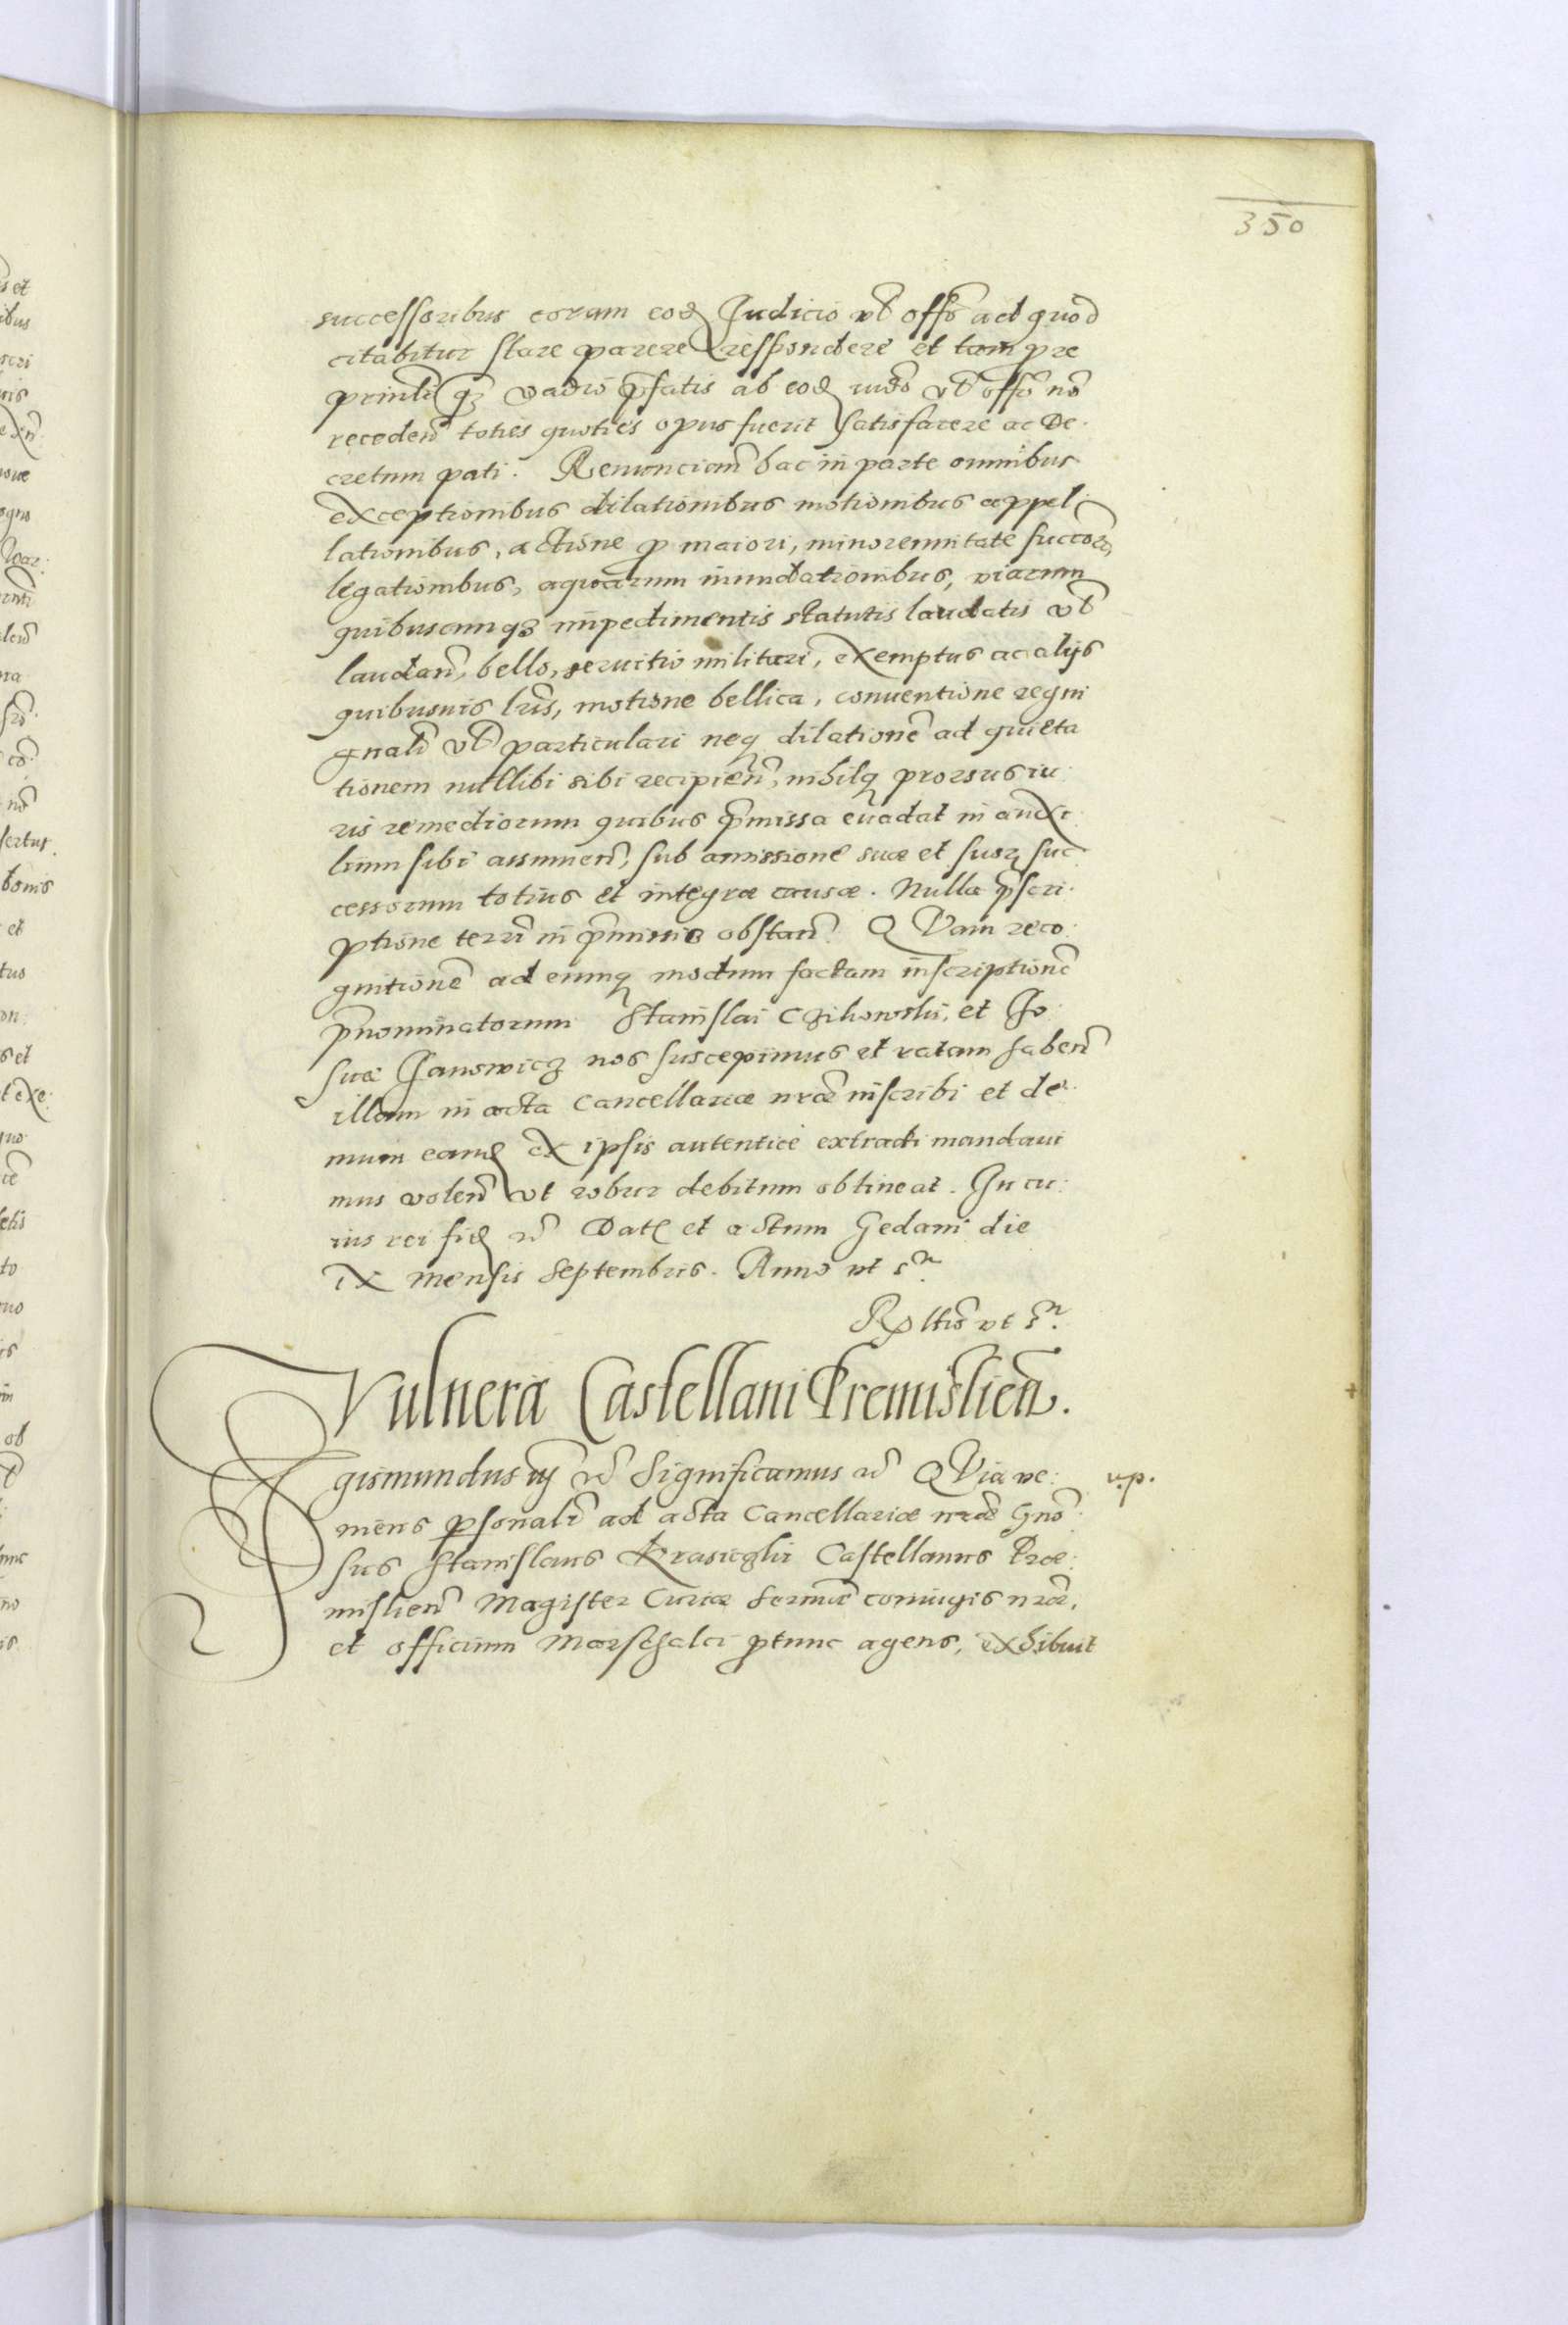 350
successoribus coram eod Judicio vl offo ad quod
citabitur stare parere & respondere et tam prae
principali qz vadio pfatis ab eod iudo vl offo no
receden toties quoties opus fuerit satisfacere ac De
cretum pati. Renuncian hac in parte omnibus
exceptionibus dilationibus motionibus appel
lationibus, actione p maiori, minorennitate succoru
legationibus, aquarum inundationibus, viarum
quibuscunqz impedimentis statutis laudatis vl
laudan, bello, seruitio militari, exemptus ac alijs
quibusuis lris, motione bellica, conuentione regni
gnali vl particulari neq dilatione ad quieta
tionem nullibi sibi recipien, nihilq prorsus iu:
ris remediorum quibus pmissa euadat in auxi:
lium sibi assumen, sub amissione suae et suor suc
cessorum totius et integrae causae. Nulla pscri:
ptione terri in pmissis obstan. QVam reco:
gnitione ad eumq modum factam inscriptione
pnominatorum Stanislai Czihowski, et Jo
suae Janowicz nos suscepimus et ratam haben
illam in acta Cancellariae nrae inscribi et de
mum eand ex ipsis autentice extradi mandaui
mus volen vt robur debitum obtineat. In cu:
ius rei fid &c Dat et actum Gedani die
ix mensis Septembris. Anno vt sa.
Rltio vt sa.
Vulnera Castellani Premislien.
Sigismundus iij &c Significamus &c QVia ve: v.p.
niens psonali ad acta Cancellariae nrae Gno
sus Stanislaus Krasiczki Castellanus Prae:
mislien Magister Curiae Sermae coniugis nrae,
et officium Marschalci ptunc agens, exhibuit